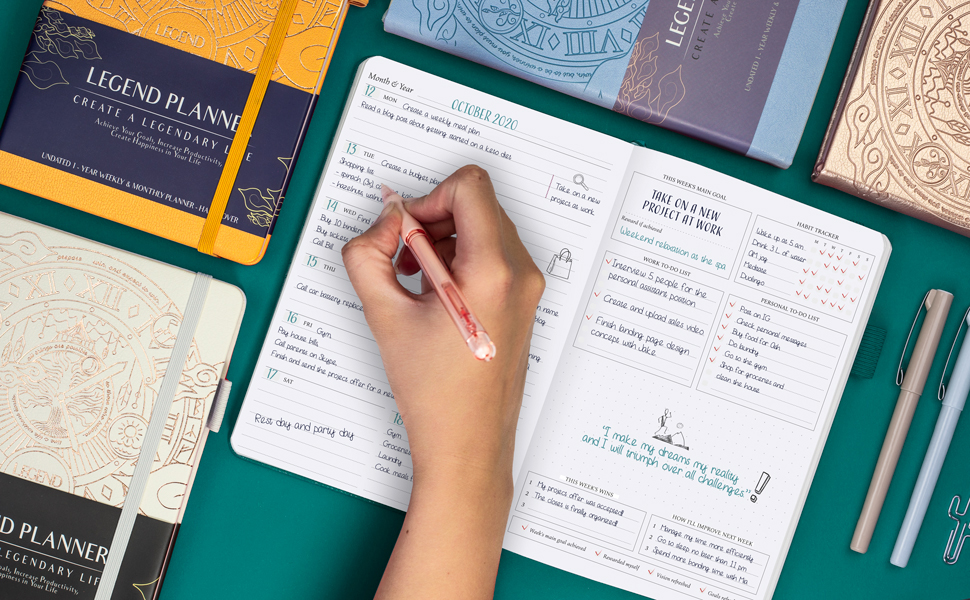 LEGEND
LEGEND PLANNE
CREATE A LEGENDARY L FE
Achieve Your Goals, Increase Productivity,
Create Happiness in Your Life
UNDATED 1 - YEAR WEEKLY & MONTHLY PLANNER - HA COVER
LEGEND
CREATE A
UNDATED 1 - YEAR WEEKLY &
LEGEND
D PLANNER
LEGENDARY LIFE
Goals, Increase Productivity,
Happiness in Your Life
Month & Year
OCTOBER 2020
12 MON Create a weekly meal plan
Read a blog post about getting started on a keto diet
13 TUE Create a budget plan
Shopping list
- spinach
- hazelnuts, walnuts
Take on a new
project at work
14 WED Find
Buy 10 binding
Buy tickets
Call Bill
15 THU
Call car battery replace
16 FRI Gym
Pay house bills
Call parents on Skype
Finish and send the project offer for a new
17 SAT
Rest day and party day
18
Gym
Groceries
Laundry
Cook meals
THIS WEEK'S MAIN GOAL
TAKE ON A NEW
PROJECT AT WORK
Reward if achieved
Weekend relaxation at the spa
WORK TO-DO LIST
Interview 5 people for the
personal assistant position
Create and upload sales video
Finish landing page design
concept with Jake
HABIT TRACKER
M T W T F S S
Wake up at 5 am
Drink 3 L of water
Art joy
Meditate
Duolingo
PERSONAL TO-DO LIST
Post on IG
Check personal messages
Buy food for Ash
Do laundry
Go to the gym
Shop for groceries and
clean the house
"I make my dreams my reality
and I will triumph over all challenges"
THIS WEEK'S WINS
1 My project offer was accepted!
2 The closet is finally organized!
3
HOW I'LL IMPROVE NEXT WEEK
1 Manage my time more efficiently
2 Go to sleep no later than 11 pm
3 Spend more bonding time with Mia
Week's main goal achieved
Rewarded myself
Vision refreshed
Goals